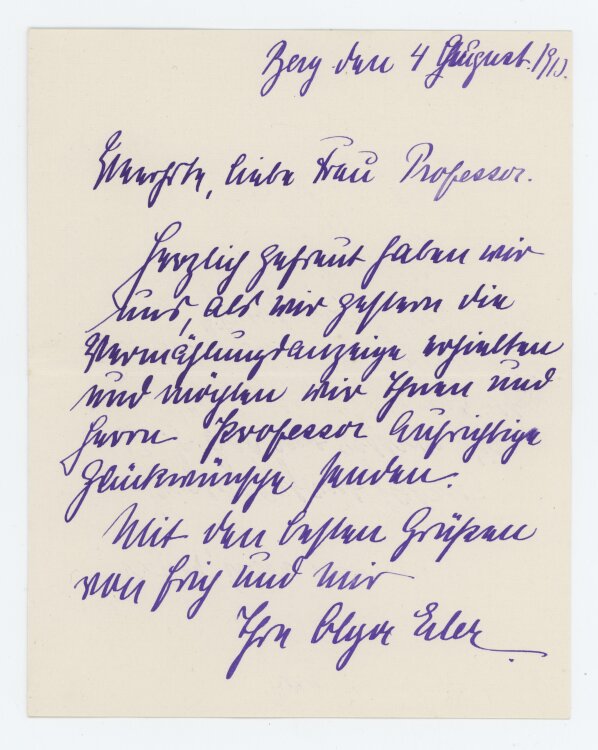 Berg den 4 August.
Verehrte, liebe Frau Professor.
Herzlich gefreut haben wir
uns, als wir gestern die
Vermählungsanzeige erhielten
und möchten wir Ihnen und
Herrn Professor aufrichtige
Glückwünsche senden.
Mit den besten Grüßen
von Erich und mir
Ihre Olga